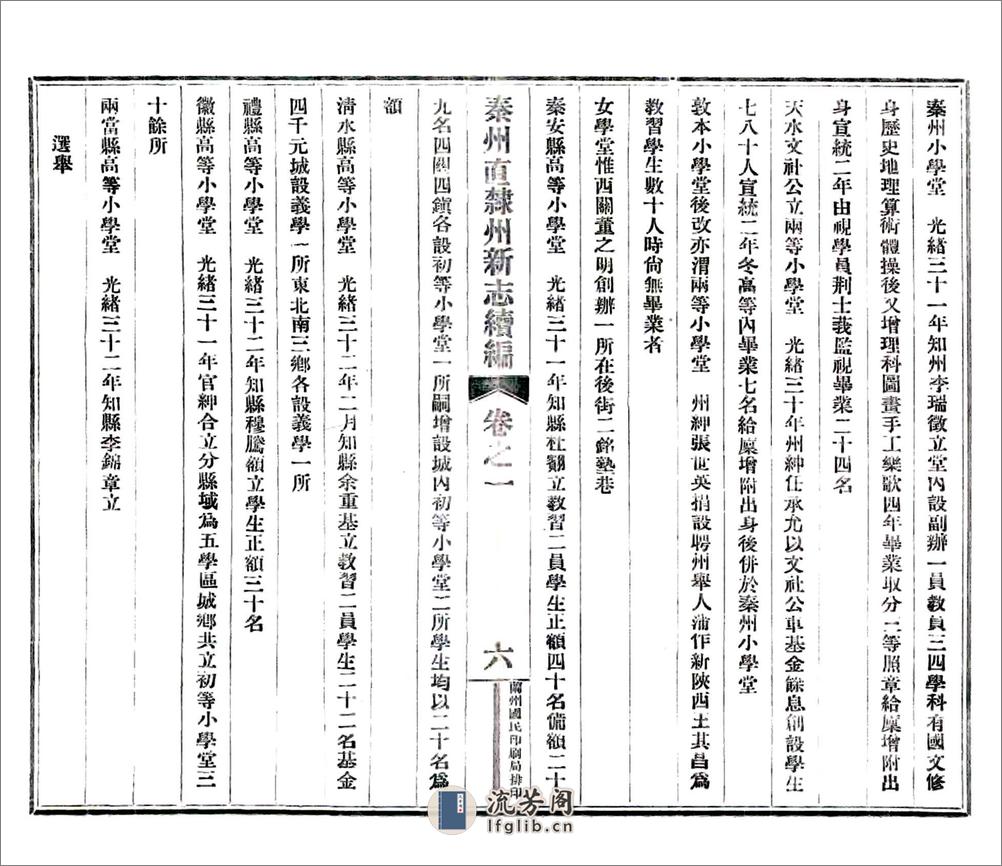 秦州小學堂　光緒三十一年知州李瑞徵立堂內設副辦一員教員三四學科有國文修
身歷史地理算術體操後又增理科圖畫手工樂歌四年畢業取分二等照章給廩增附出
身宣統二年由視學員荆士莪監視畢業二十四名
天水文社公立兩等小學堂　光緒三十年州紳任承允以文社公車基金餘息創設學生
七八十人宣統二年冬高等內畢業七名給廩增附出身後併於秦州小學堂
敦本小學堂後改亦渭兩等小學堂　州紳張世英捐設聘州舉人蒲作新陝西王其昌爲
教習學生數十人時尙無畢業者
女學堂惟西關董之明創辦一所在後街二銘塾巷
秦安縣高等小學堂　光緒三十一年知縣杜翻立教習二員學生正額四十名備額二十
秦州直隸州新志續編　卷之一　六　蘭州國民印刷局排印
九名四關四鎮各設初等小學堂一所嗣增設城內初等小學堂二所學生均以二十名爲
額
清水縣高等小學堂　光緒三十二年二月知縣余重基立教習二員學生二十二名基金
四千元城設義學一所東北南三鄉各設義學一所
禮縣高等小學堂　光緒三十二年知縣穆騰額立學生正額三十名
徽縣高等小學堂　光緒三十一年官紳合立分縣域爲五學區城鄉共立初等小學堂三
十餘所
兩當縣高等小學堂　光緒三十二年知縣李錦章立
選舉
流芳阁
lfglib.cn